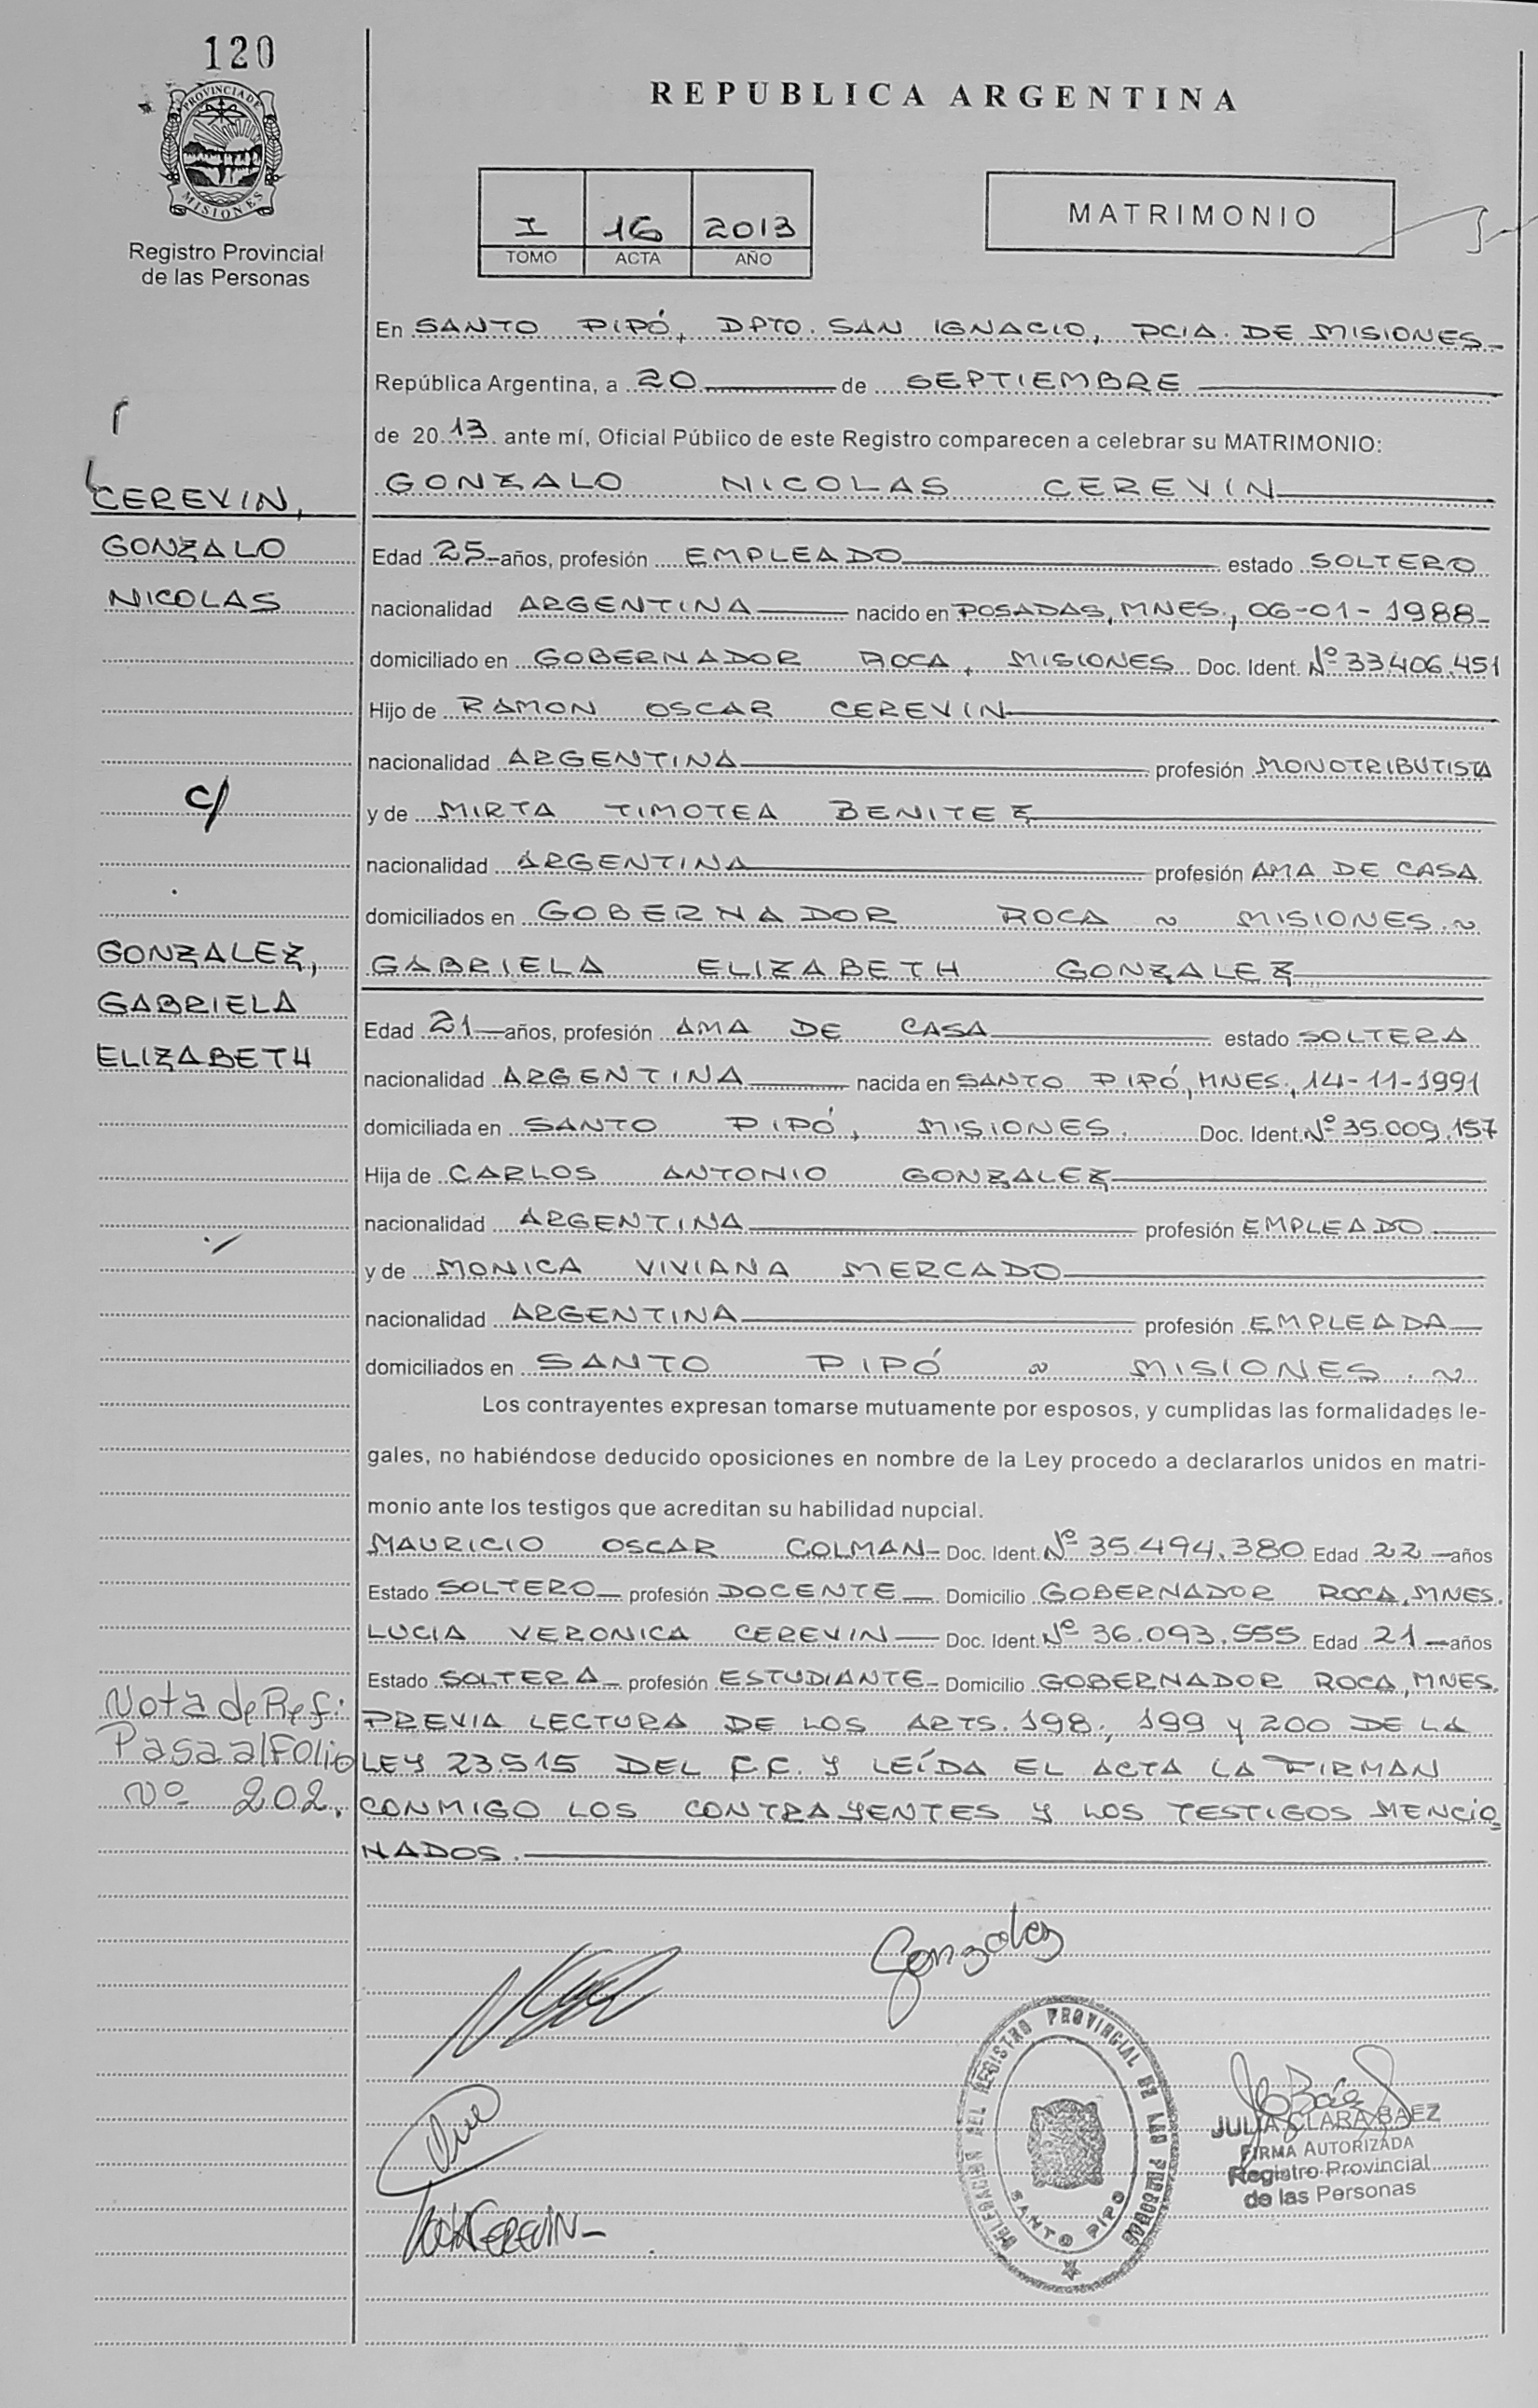 120
PROVINCIA DE
MISIONES
Registro Provincial
de las Personas
REPUBLICA ARGENTINA
I 16 2013
TOMO ACTA AÑO
MATRIMONIO
En SANTO PIPÓ, DPTO. SAN IGNACIO, PCIA. DE MISIONES
República Argentina, a 20 de SEPTIEMBRE
de 2013 ante mí, Oficial Público de este Registro comparecen a celebrar su MATRIMONIO:
GONZALO NICOLAS CEREVIN
CEREVIN,
GONZALO
NICOLAS
c/
GONZALEZ,
GABRIELA
ELIZABETH
Edad 25 años, profesión EMPLEADO estado SOLTERO
nacionalidad ARGENTINA nacido en POSADAS, MNES., 06-01-1988
domiciliado en GOBERNADOR ROCA, MISIONES Doc. Ident. Nº 33.406.451
Hijo de RAMON OSCAR CEREVIN
nacionalidad ARGENTINA profesión MONOTRIBUTISTA
y de MIRTA TIMOTEA BENITEZ
nacionalidad ARGENTINA profesión AMA DE CASA
domiciliados en GOBERNADOR ROCA ~ MISIONES.~
GABRIELA ELIZABETH GONZALEZ
Edad 21 años, profesión AMA DE CASA estado SOLTERA
nacionalidad ARGENTINA nacida en SANTO PIPÓ, MNES., 14-11-1991
domiciliada en SANTO PIPÓ, MISIONES. Doc. Ident. Nº 35.009.157
Hija de CARLOS ANTONIO GONZALEZ
nacionalidad ARGENTINA profesión EMPLEADO
y de MONICA VIVIANA MERCADO
nacionalidad ARGENTINA profesión EMPLEADA
domiciliados en SANTO PIPÓ ~ MISIONES.~
Los contrayentes expresan tomarse mutuamente por esposos, y cumplidas las formalidades le-
gales, no habiéndose deducido oposiciones en nombre de la Ley procedo a declararlos unidos en matri-
monio ante los testigos que acreditan su habilidad nupcial.
MAURICIO OSCAR COLMAN Doc. Ident. Nº 35.494.380 Edad 22 años
Estado SOLTERO profesión DOCENTE Domicilio GOBERNADOR ROCA, MNES.
LUCIA VERONICA CEREVIN Doc. Ident. Nº 36.093.555 Edad 21 años
Estado SOLTERA profesión ESTUDIANTE Domicilio GOBERNADOR ROCA, MNES.
PREVIA LECTURA DE LOS ARTS. 198, 199 y 200 DE LA
LEY 23.515 DEL C.C. Y LEÍDA EL ACTA LA FIRMAN
CONMIGO LOS CONTRAYENTES Y LOS TESTIGOS MENCIO
NADOS.
Nota de Ref:
Pasa al Folio
Nº 202.
Gonzalez
CEREVIN
DELEGACION DEL REGISTRO PROVINCIAL DE LAS PERSONAS
SANTO PIPO
JULIA CLARA BAEZ
FIRMA AUTORIZADA
Registro Provincial
de las Personas